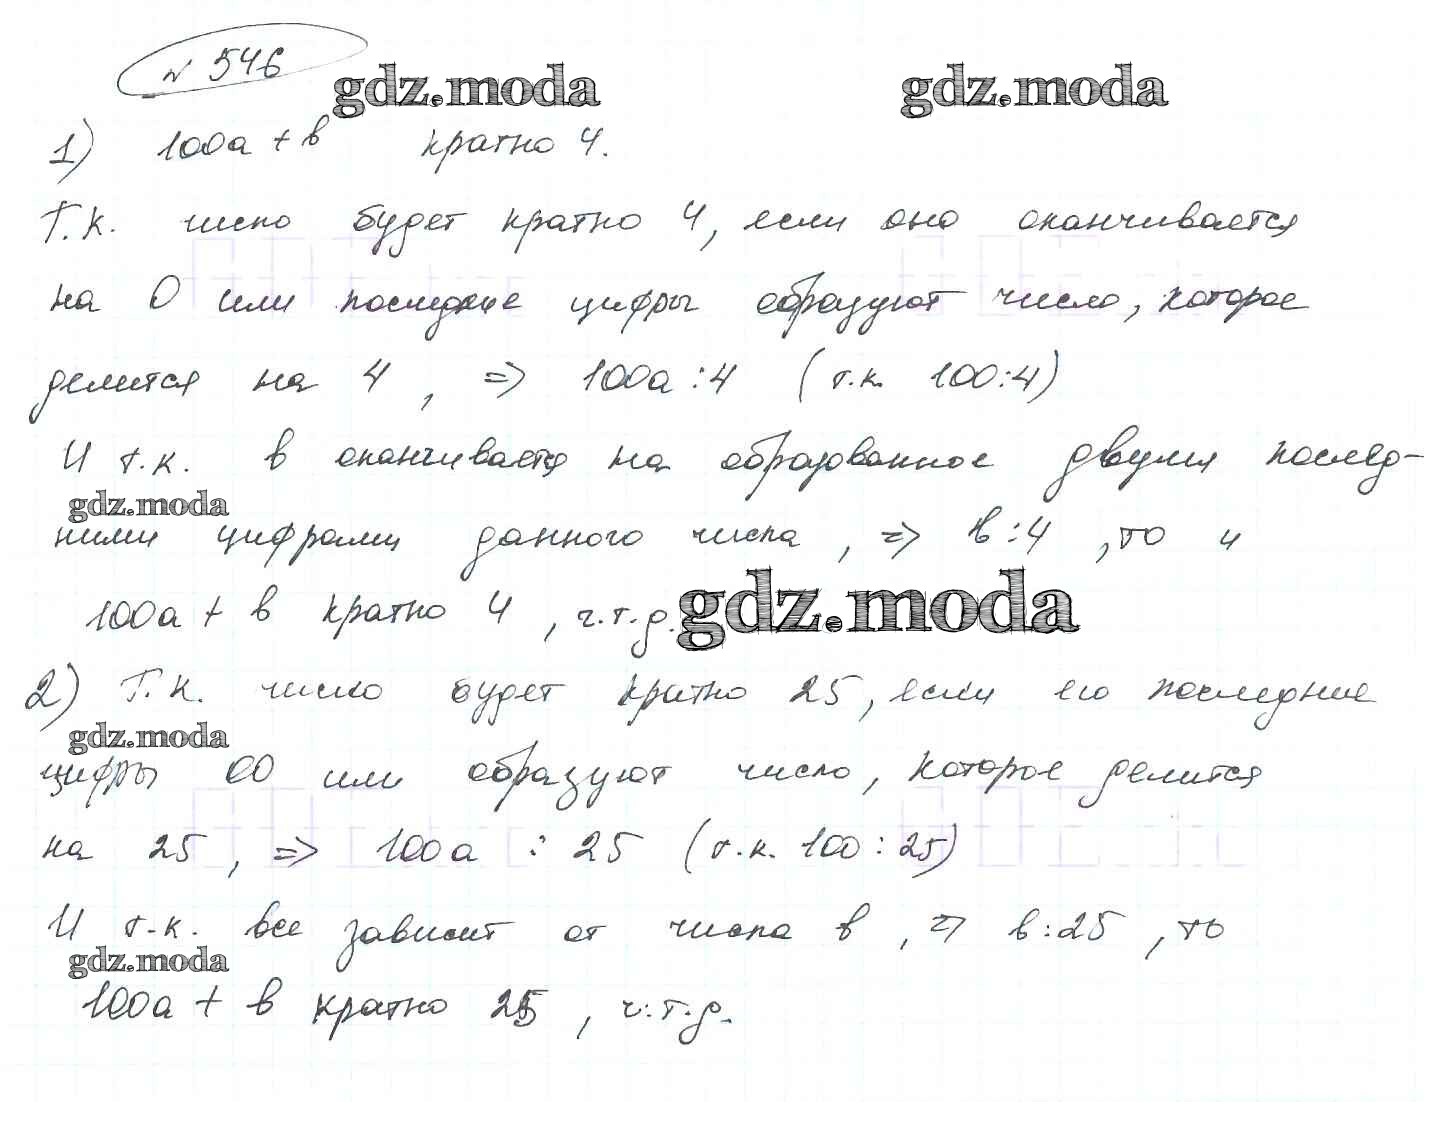 № 546
gdz.moda gdz.moda
1) 100а + в кратно 4.
Т.к. число будет кратно 4, если оно оканчивается
на 0 или последние цифры образуют число, которое
делится на 4, => 100а : 4 (т.к. 100:4)
И т.к. в оканчивается на образованное двумя послед-
gdz.moda
ними цифрами данного числа, => в : 4, то и
100а + в кратно 4, ч.т.д.
gdz.moda
2) Т.к. число будет кратно 25, если его последние
gdz.moda
цифры 00 или образуют число, которое делится
на 25, => 100а : 25 (т.к. 100 : 25)
И т.к. все зависит от числа в, => в : 25, то
gdz.moda
100а + в кратно 25, ч.т.д.